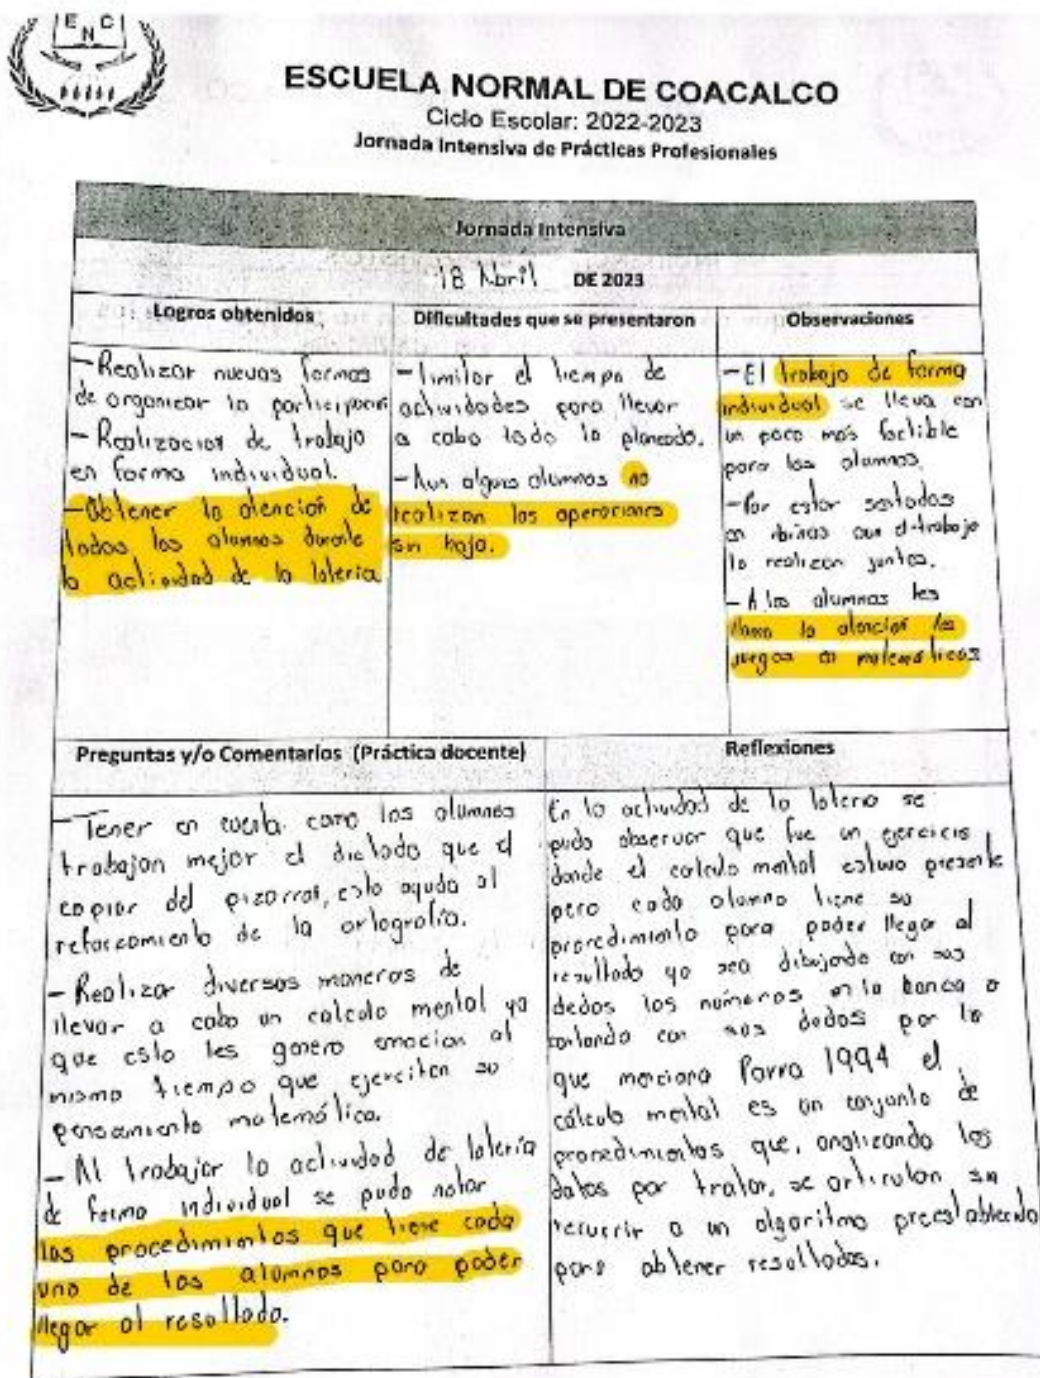 E N C
ESCUELA NORMAL DE COACALCO
Ciclo Escolar: 2022-2023
Jornada Intensiva de Prácticas Profesionales
Jornada Intensiva
18 Abril DE 2023
Logros obtenidos
- Realizar nuevas formas
de organizar la participacion
- Realización de trabajo
en forma individual.
- Obtener la atención de
todos los alumnos durante
la actividad de la lotería
Dificultades que se presentaron
- limitar el tiempo de
actividades para llevar
a cabo todo lo planeado.
- Aun algunos alumnos no
realizan las operaciones
sin hoja.
Observaciones
- El trabajo de forma
individual se lleva con
un poco más factible
para los alumnos.
- Por estar sentados
en binas aun el trabajo
lo realizan juntos.
- A los alumnos les
llama la atención los
juegos en matemáticas
Preguntas y/o Comentarios (Práctica docente)
- Tener en cuenta como los alumnos
trabajan mejor el dictado que el
copiar del pizarron, esto ayuda al
reforzamiento de la ortografía.
- Realizar diversas maneras de
llevar a cabo un calculo mental ya
que esto les genero emocion al
mismo tiempo que ejerciten su
pensamiento matemático.
- Al trabajar la actividad de lotería
de forma individual se pudo notar
los procedimientos que tiene cada
uno de los alumnos para poder
llegar al resultado.
Reflexiones
En la actividad de la lotería se
pudo observar que fue un ejercicio
donde el calculo mental estuvo presente
pero cada alumno tiene su
procedimiento para poder llegar al
resultado ya sea dibujando con sus
dedos los números en la banca o
contando con sus dedos por lo
que menciona Parra 1994 el
cálculo mental es un conjunto de
procedimientos que, analizando los
datos por tratar, se articulan sin
recurrir a un algoritmo preestablecido
para obtener resultados.